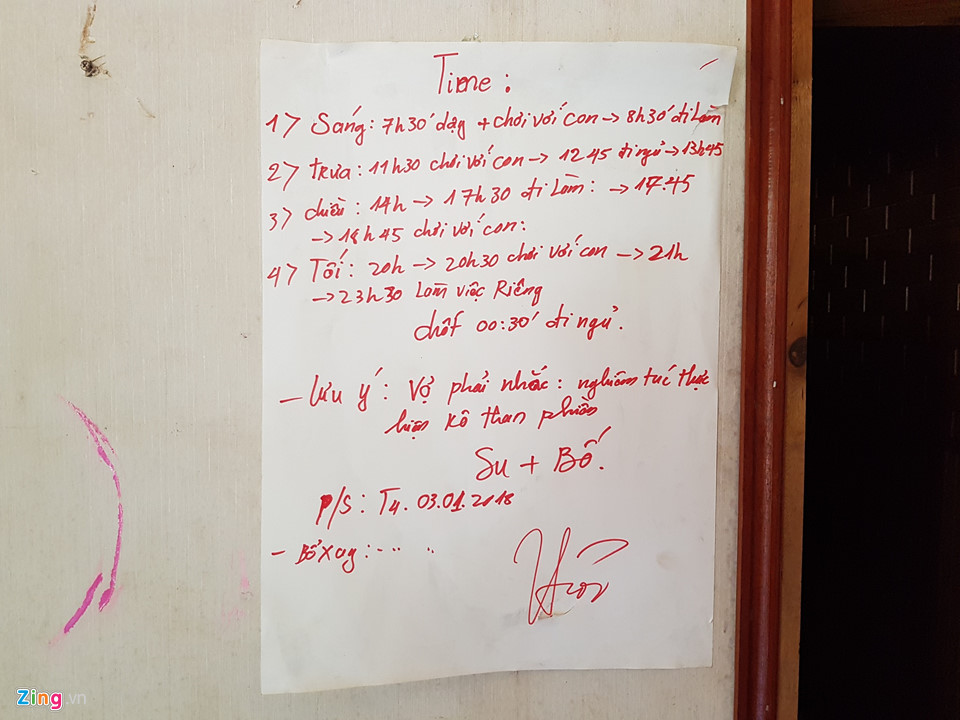 Time:
1> Sáng: 7h30' dạy + chơi với con → 8h30' đi Làm
2> trưa: 11h30 chơi với con → 12 45 đi ngủ → 13h45
3> chiều: 14h → 17h30 đi Làm: → 17:45
→ 18h45 chơi với con:
4> Tối: 20h → 20h30 chơi với con → 21h
→ 23h30 Làm việc Riêng
chốt 00:30' đi ngủ.
- Lưu ý: Vợ phải nhắc: nghiêm túc thực
hiện kô than phiền
Su + Bố.
P/S: T4. 03.01.2018
- Bổ xag: - .. ..
Zing.vn